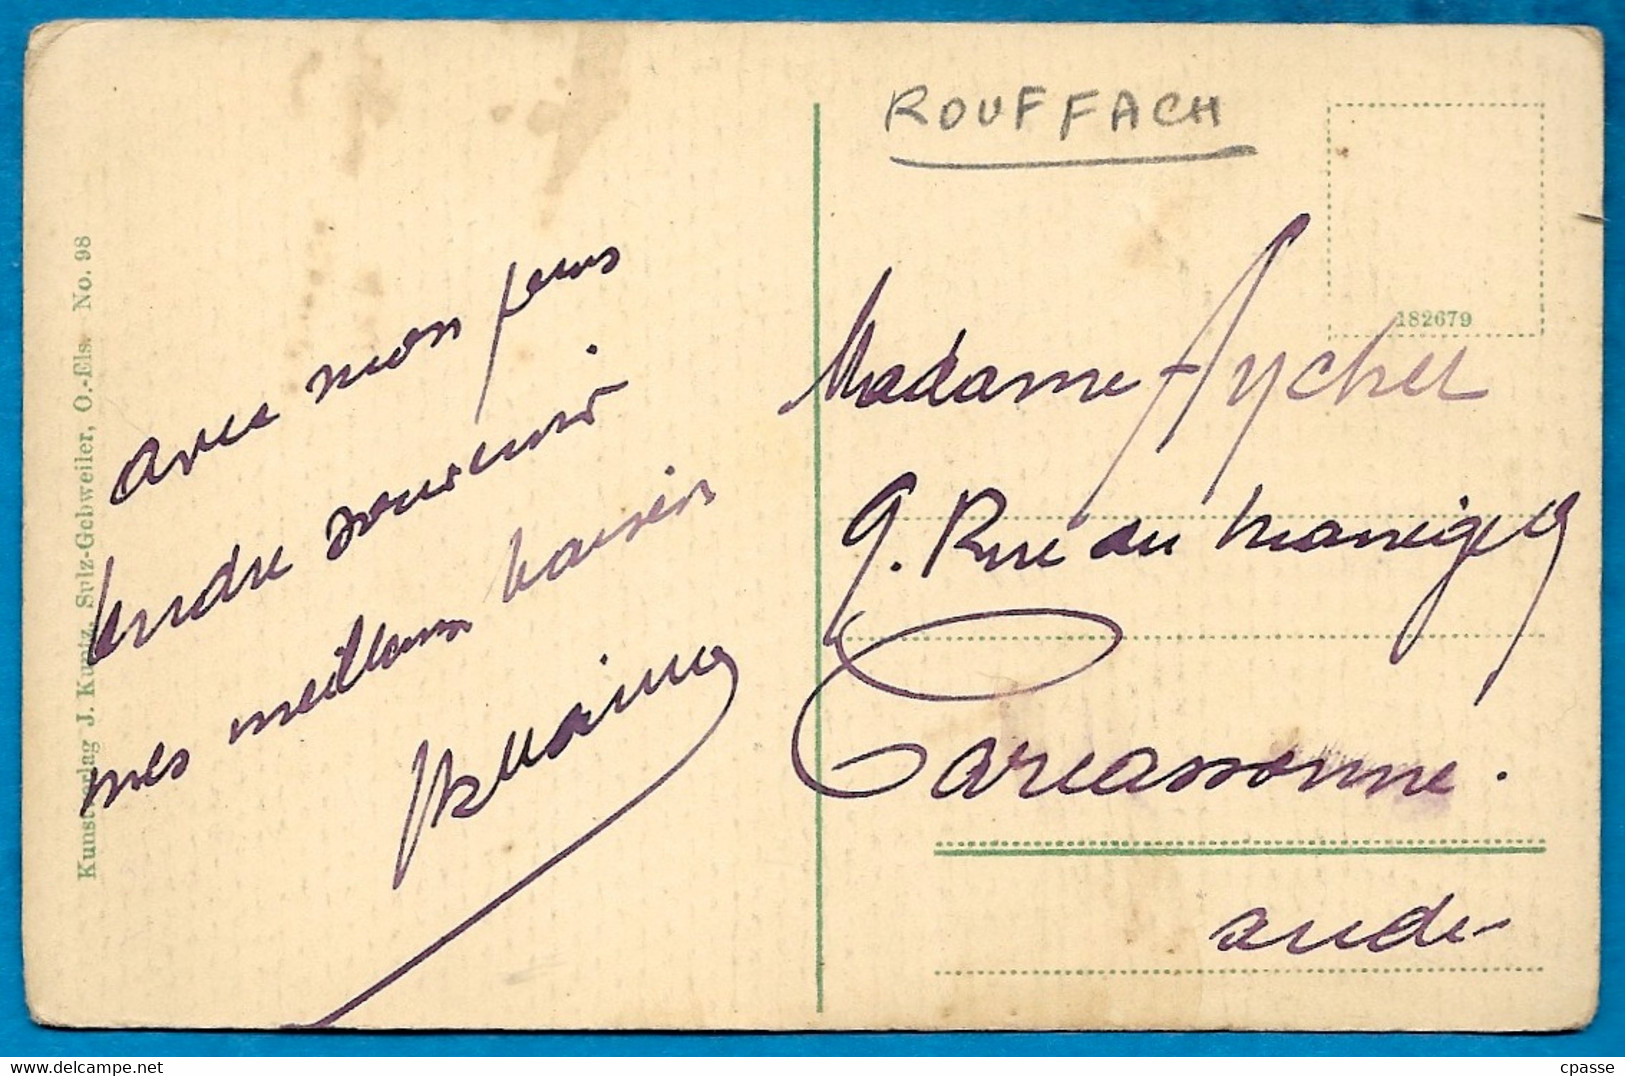 Kunstverlag J. Kuntz, Sulz-Gebweiler, O.-Els. No. 98
avec mon
tendre souvenir
mes meilleurs baisers
ROUFFACH
182679
Madame Aycher
9. Rue du Manège
Carcassonne.
Aude
cpasse